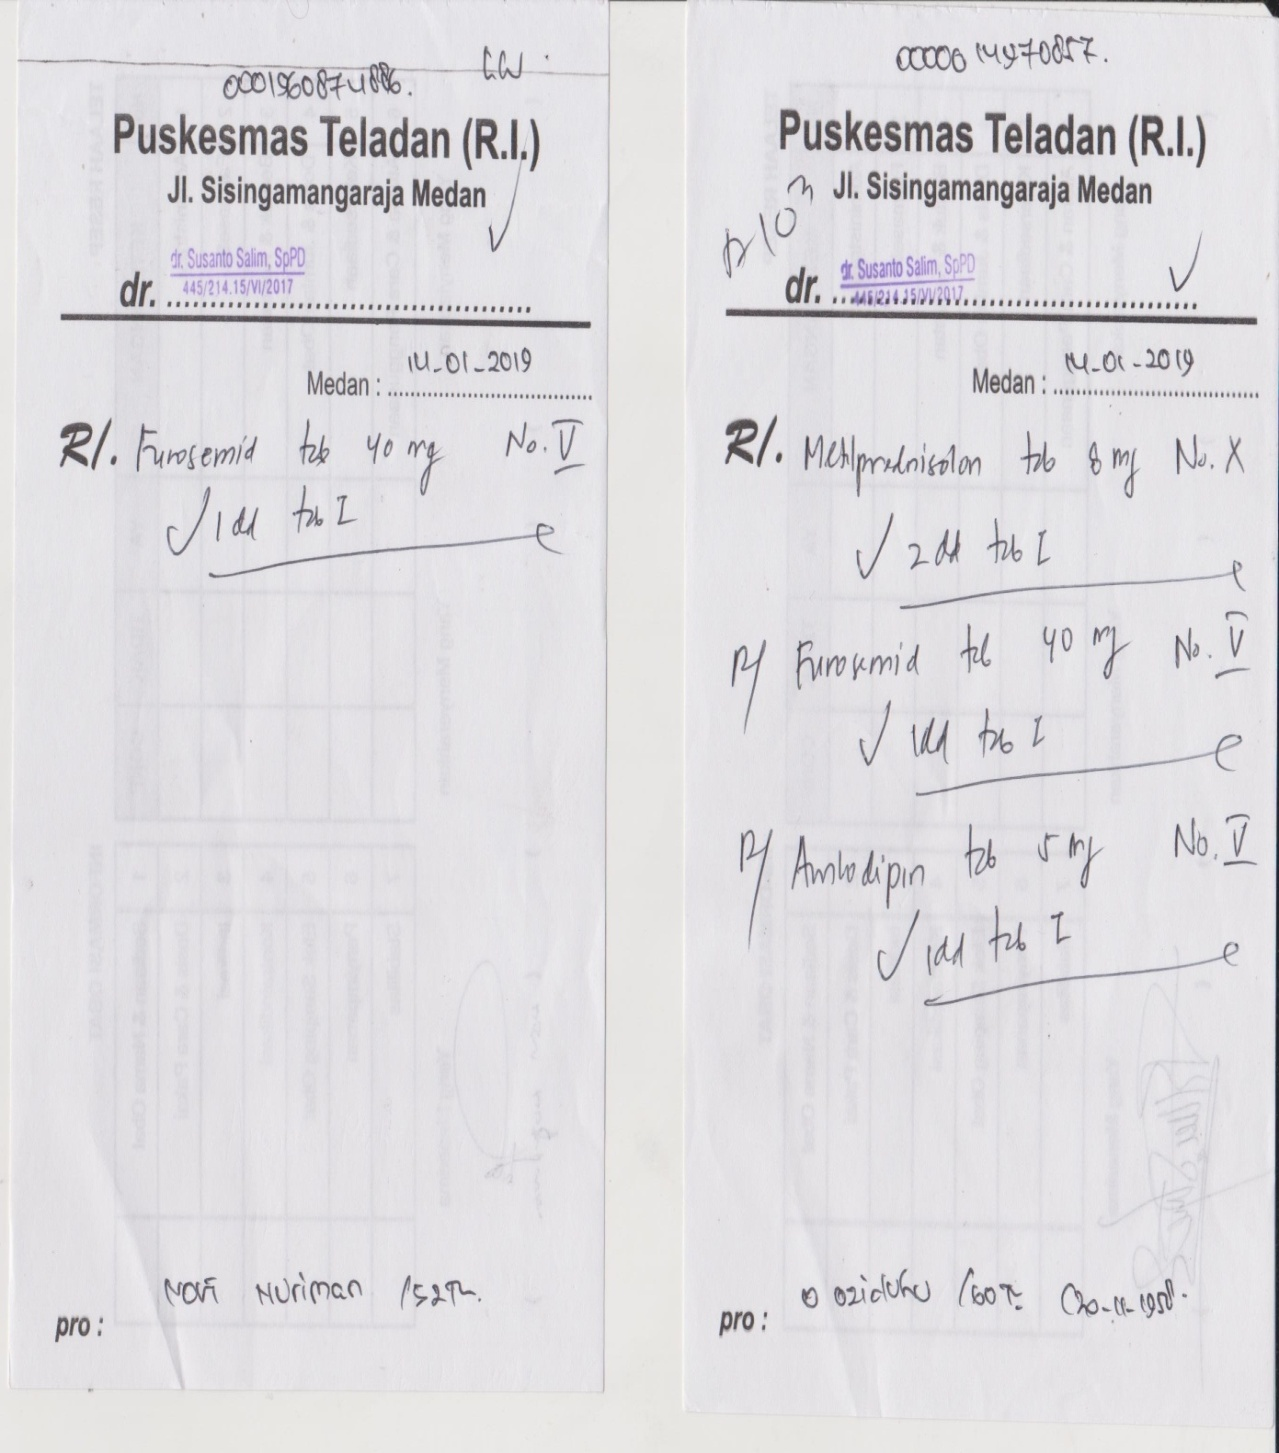 0001560874886.
Puskesmas Teladan (R.I.)
Jl. Sisingamangaraja Medan
dr. Susanto Salim, SpPD
445/214.15/VI/2017
dr. ....................................
Medan : 14-01-2019
R/. Furosemid tab 40 mg No. V
1 dd tab I
Novi Nuriman /52Th.
pro :
Puskesmas Teladan (R.I.)
Jl. Sisingamangaraja Medan
dr. Susanto Salim, SpPD
445/214.15/VI/2017
dr. ....................................
Medan : 14-01-2019
R/. Metilprednisolon tab 8 mg No. X
2 dd tab I
R/ Furosemid tab 40 mg No. V
1dd tab I
R/ Amlodipin tab 5 mg No. V
1dd tab I
/60Th
pro :